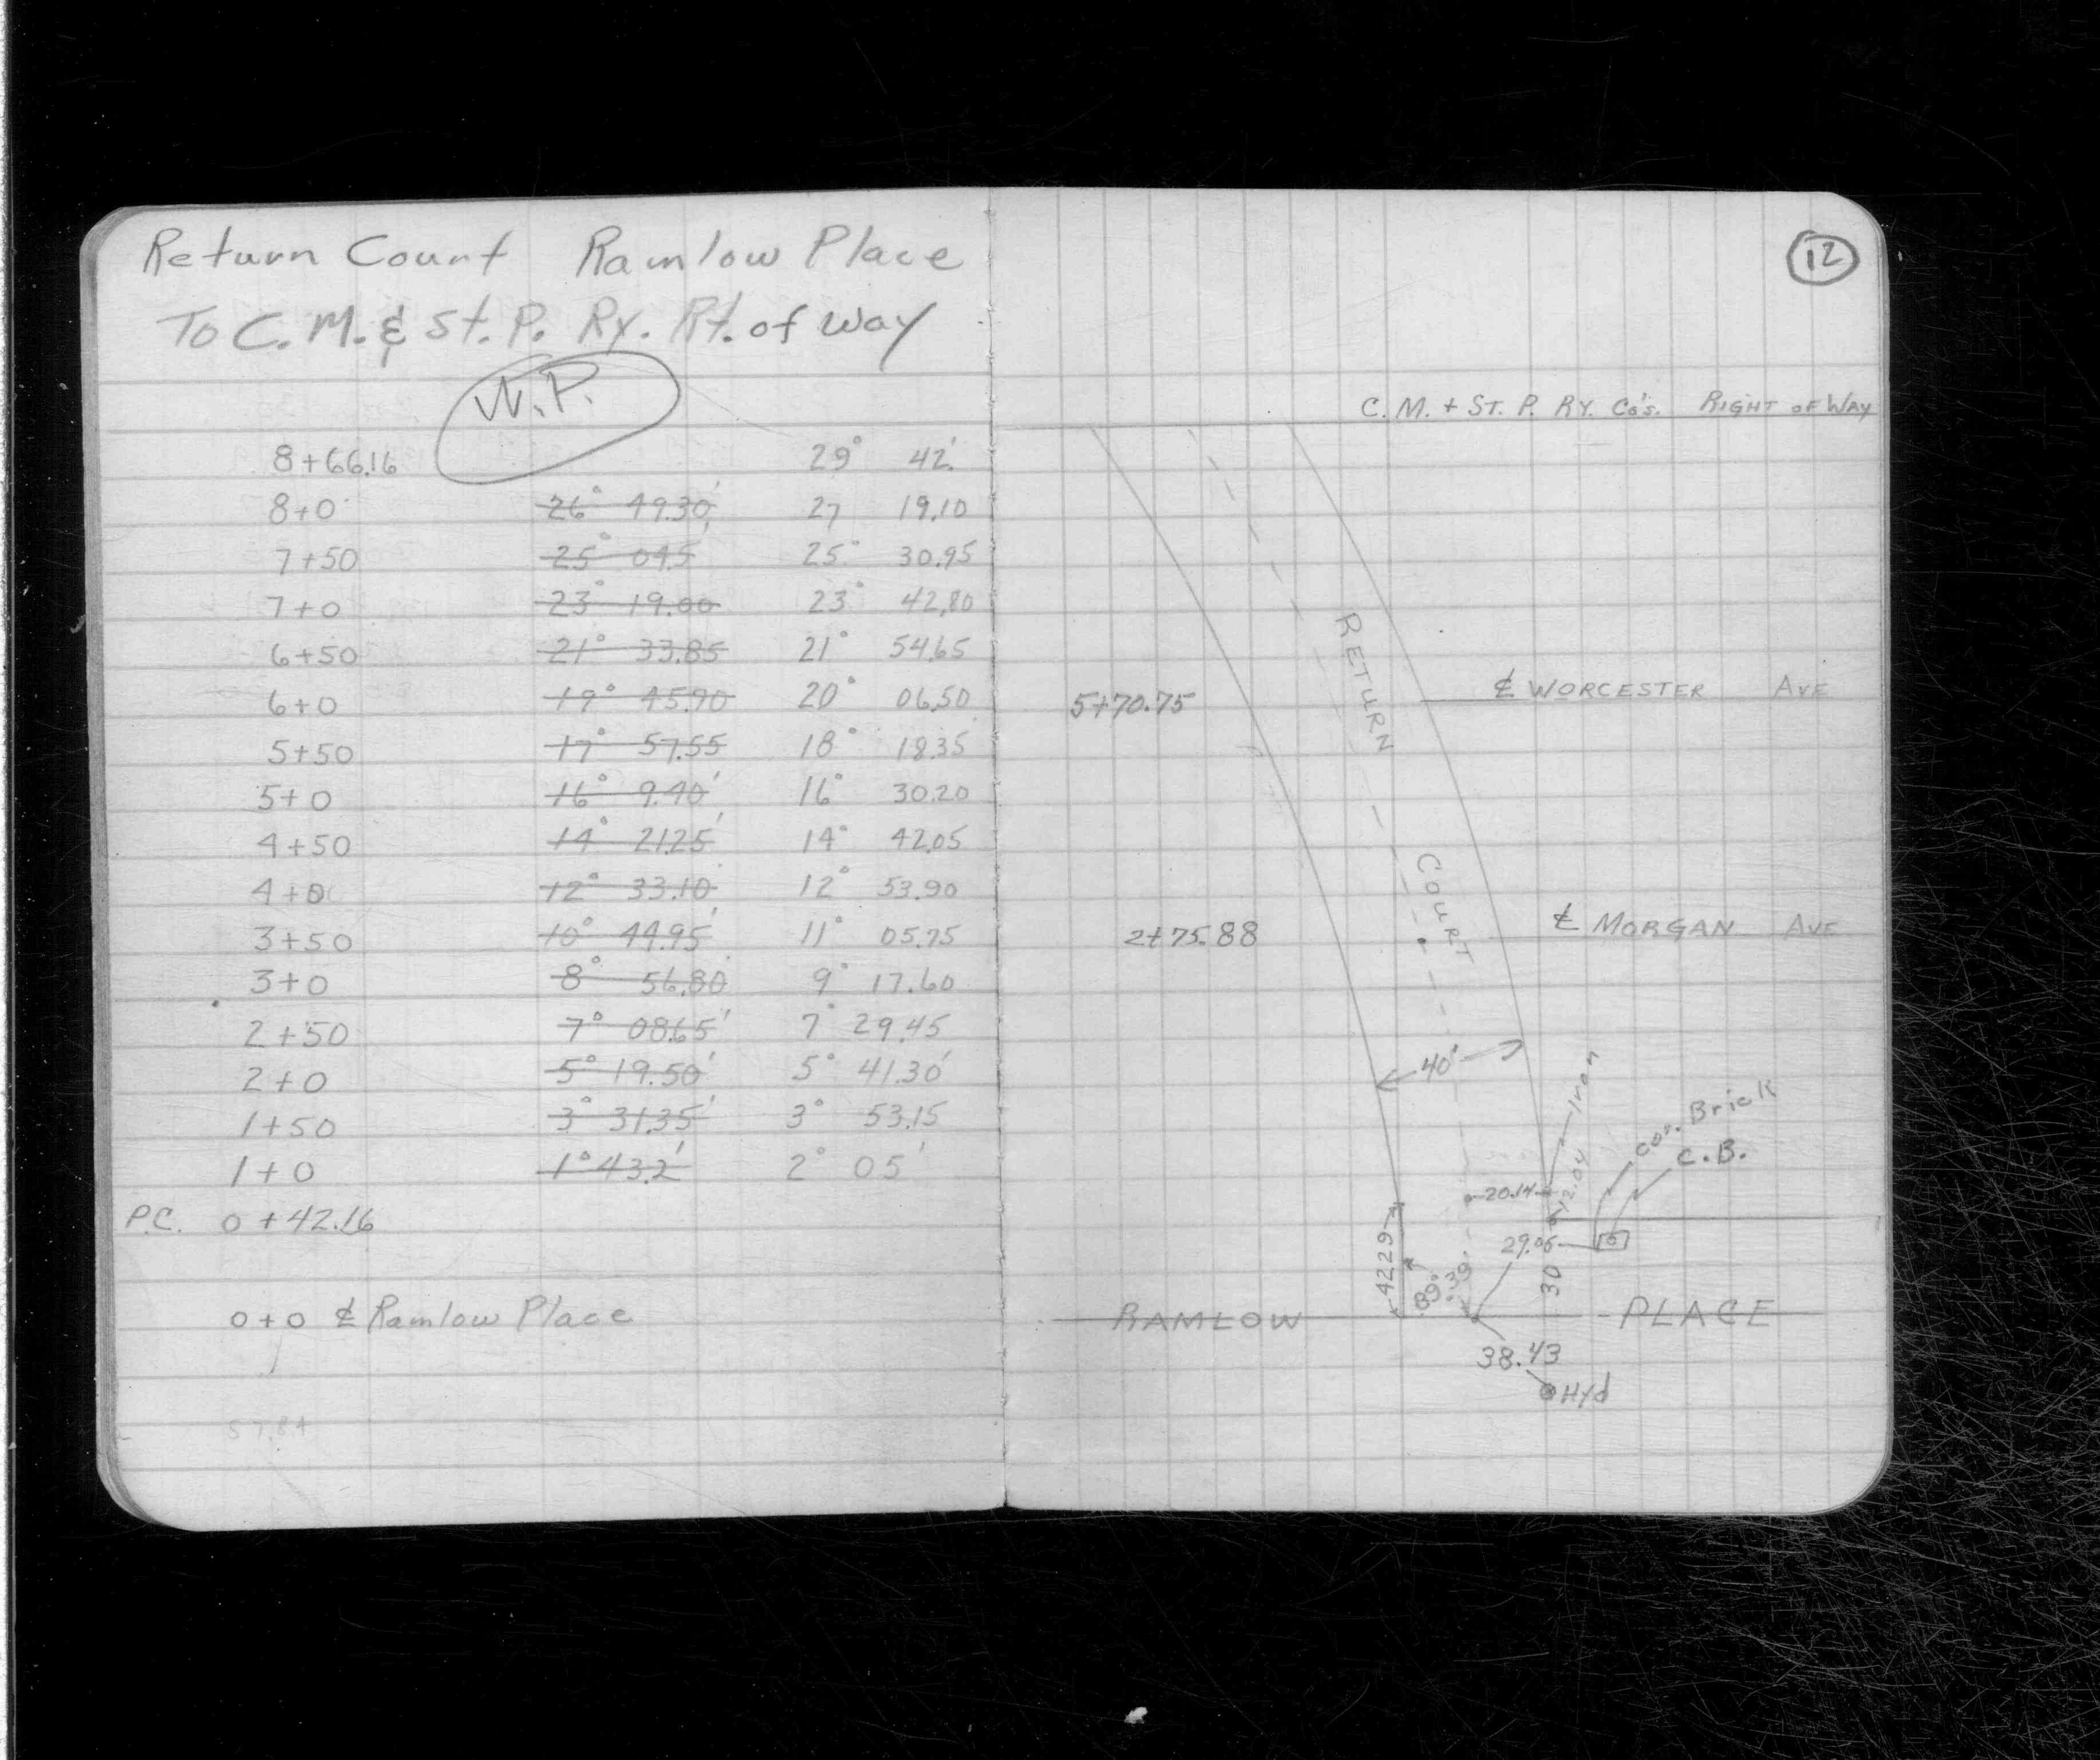 Return Court Ramlow Place
To C.M. & St. P. Ry. Rt. of Way
W.P.
8+66.16 29° 42'
8+0 26° 49.30' 27 19.10
7+50 25° 04.5' 25° 30.95
7+0 23° 19.00 23° 42.80
6+50 21° 33.85 21° 54.65
6+0 19° 45.70 20° 06.50
5+50 17° 57.55 18° 18.35
5+0 16° 9.40' 16° 30.20
4+50 14° 21.25' 14° 42.05
4+0 12° 33.10' 12° 53.90
3+50 10° 44.95' 11° 05.75
3+0 8° 56.80 9° 17.60
2+50 7° 08.65' 7° 29.45
2+0 5° 19.50' 5° 41.30'
1+50 3° 31.35' 3° 53.15
1+0 1° 43.2' 2° 05'
P.C. 0+42.16
0+0 ℄ Ramlow Place
57.84
12
C. M. + ST. P. RY. Co's. RIGHT OF WAY
RETURN
5+70.75 ℄ WORCESTER AVE
COURT
2+75.88 ℄ MORGAN AVE
40'
Iron
Cor. Brick
C.B.
20.14
12.04
29.06
42.29
89° 39'
30
RAMLOW PLACE
38.43
Hyd